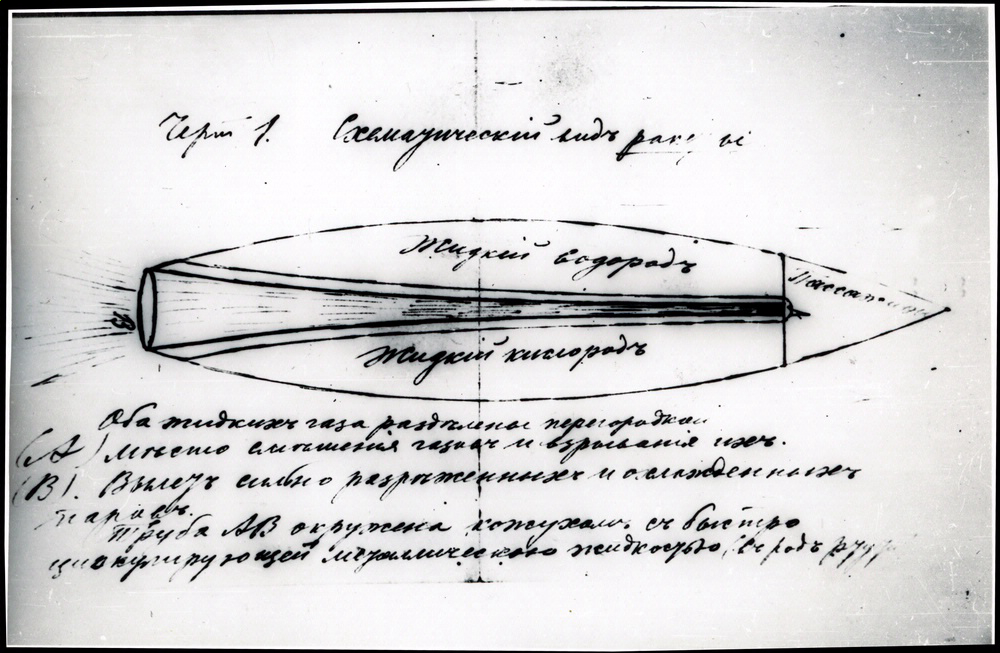 Черт 1. Схематическій видъ
Жидкій водородъ
Пассажиры
B
Жидкій кислородъ
Оба жидкихъ газа раздѣлены перегородкой
(A) Мѣсто смѣшенія газовъ и взрыванія ихъ.
(B). Вылетъ сильно разрѣженныхъ и охлажденныхъ
паровъ.
Труба AB окружена кожухомъ съ быстро
циркулирующей металлическою жидкостью (въ родѣ